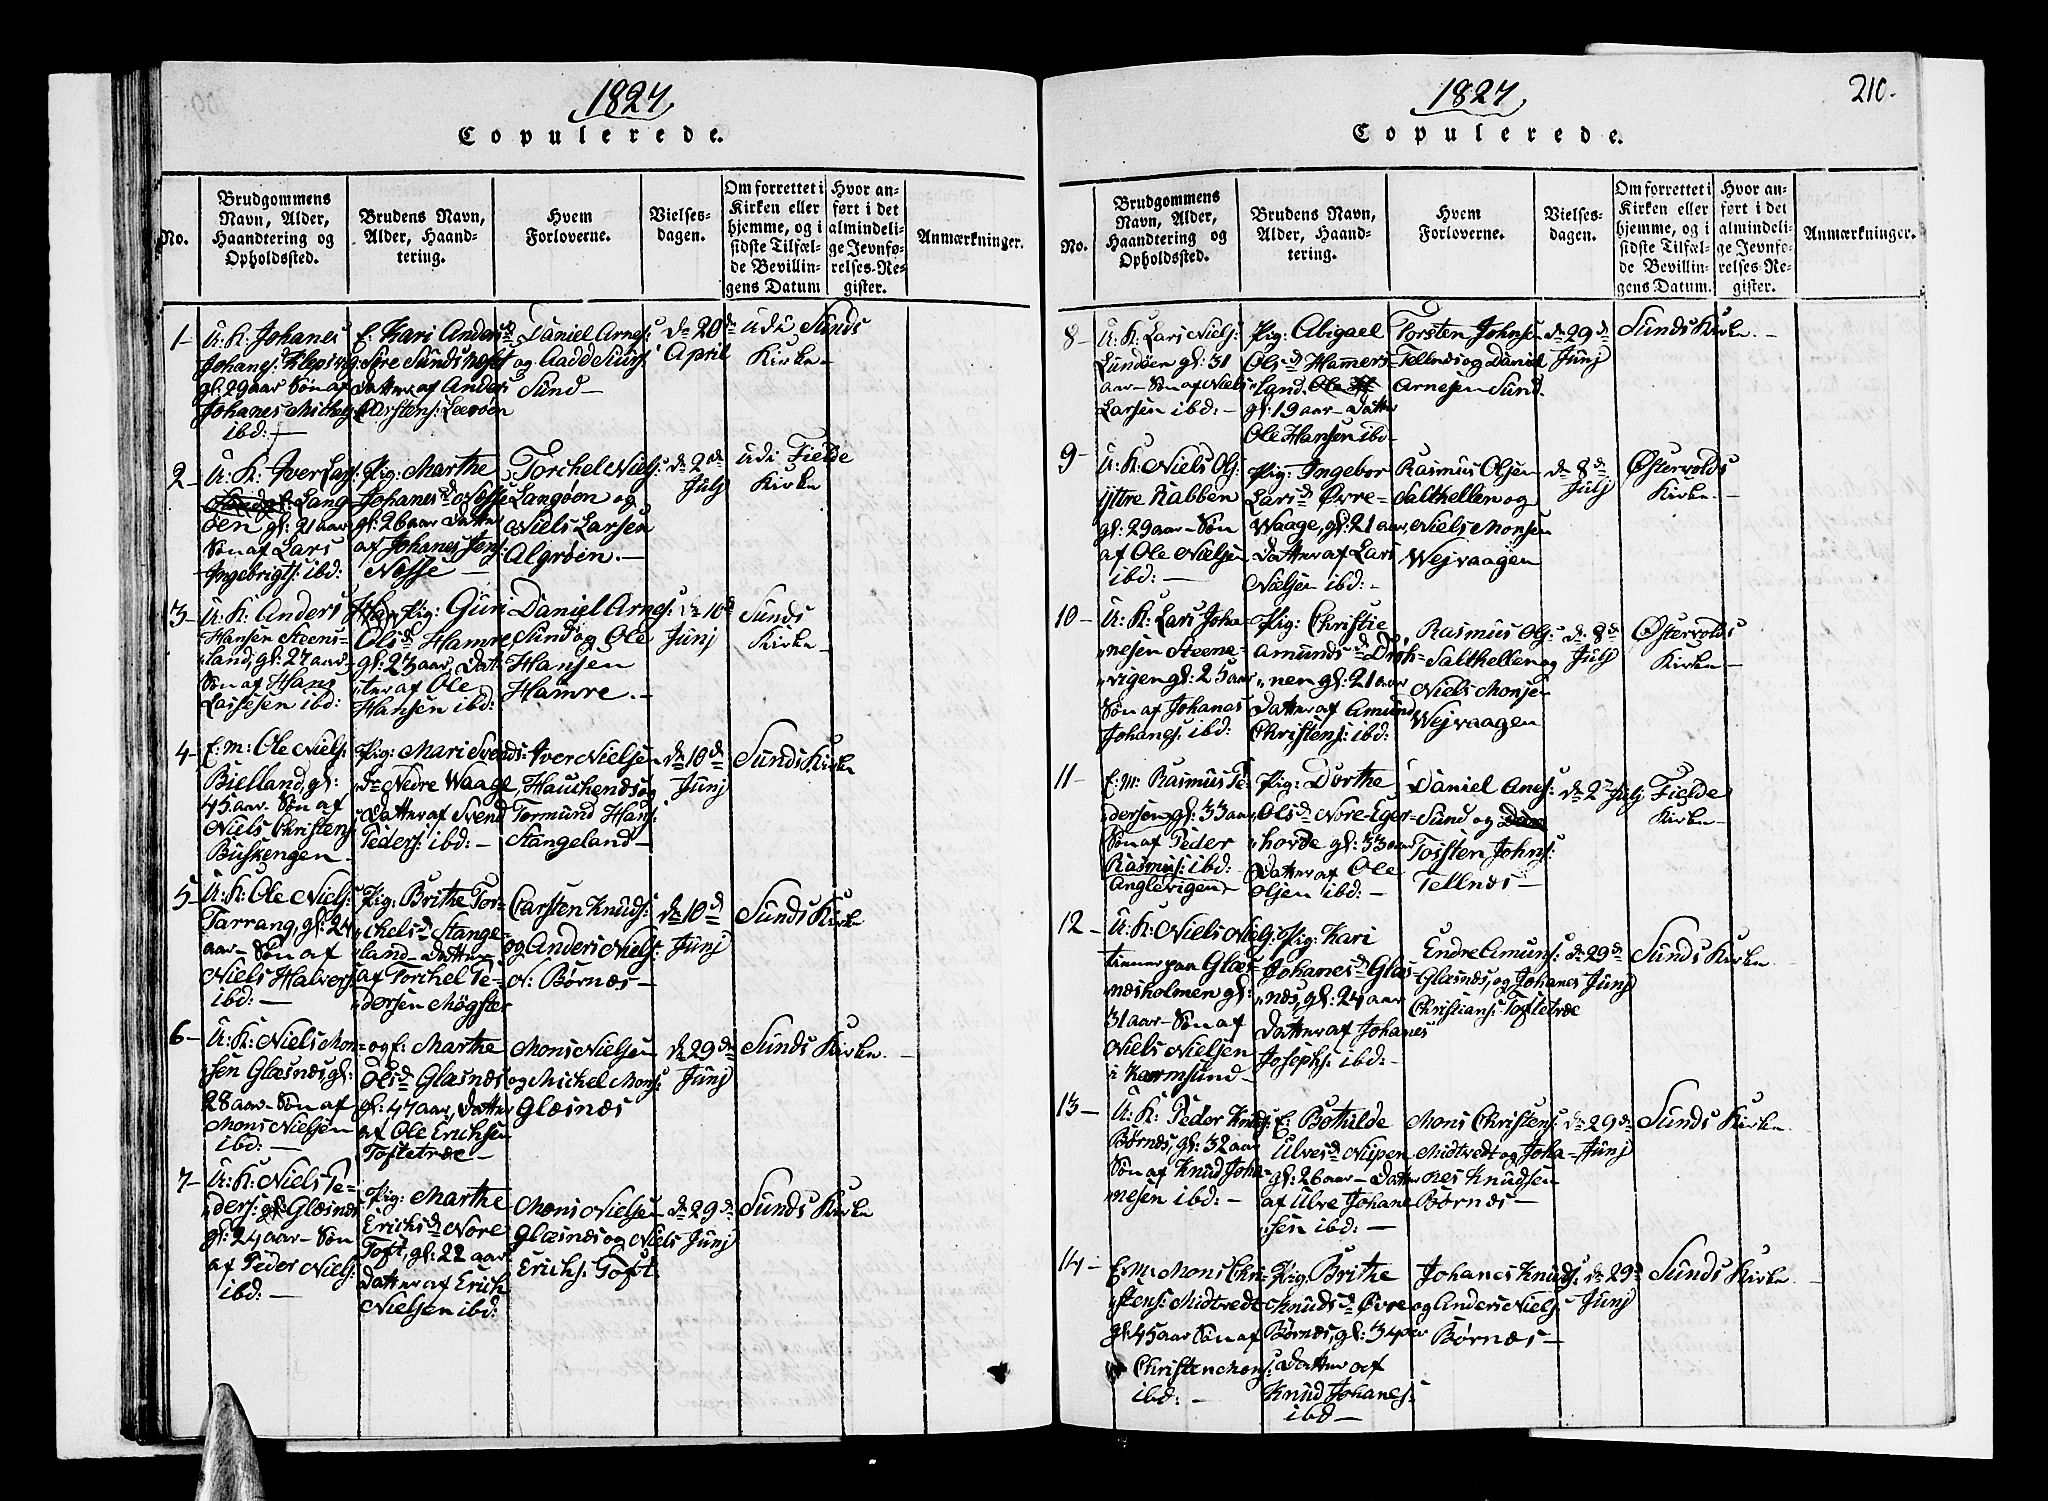 1827
Copulerede.
No.
Brudgommens
Navn, Alder,
Haandtering og
Opholdssted.
Brudens Navn,
Alder, Haand-
tering.
Hvem
Forloverne.
Vielses-
dagen.
Om forrettet i
Kirken eller
hjemme, og i
sidste Tilfæl-
de Bevillin-
gens Datum
Hvor an-
ført i det
almindeli-
ge Jevnfø-
relses-Re-
gister.
Anmærkninger.
1-
U: K: Johanes
Johanes: Klepsvig
gl: 29 aar Søn af
Johanes Michels
ibd: —
E: Kari Anders d
Søre Sundsnæset
datter af Anders
Carstens: Leerøen
Daniel Arnes:
og Aad
Sund —
dn 20de
April
udi Sunds
Kirke —
2-
U: K: Iver Lars
Lang
öen gl: 21 aar
Søn af Lars
Ingebrigts: ibd:
Pig: Marthe
Johanes d Nesse
gl: 26 aar datter
af Johanes Jens:
Nesse —
Torchel Niels:
Langøen og
Niels Larsen
Algrøen. —
dn 2de
Julj
udi Fielde
Kirke
3-
U: K: Anders
Hansen Steens-
land, gl: 27 aar
Søn af Hans
Lassesen ibd:
Pig: Guri
Ols d Hamre
gl: 23 aar, dat-
ter af Ole
Hansen ibd:
Daniel Arnes:
Sund og Ole
Hansen
Hamre. —
dn 10d
Junj
Sunds
Kirke —
4-
E: m: Ole Niels:
Bielland, gl:
45 aar. Søn af
Niels Christens
Buskengen —
Pig: Mari Svends-
d Nedre Waage,
Datter af Svend
Peders: ibd: —
Iver Nielsen
Hauchenæs og
Tormund Hans:
Stangeland —
dn 10d
Junj
Sunds Kirke
5-
U: K: Ole Niels:
Tarrang, gl: 24
aar — Søn af
Niels Halvors:
ibd: —
Pig: Brithe Tor-
chels d Stange-
land — Datter
af Torchel Pe-
dersen Møgster
Carsten Knuds:
og Anders Niels:
N: Børnæs —
dn 10d
Junj
Sunds Kirke
6-
U: K: Niels Mon-
sen Glæsnes gl:
28 aar — Søn af
Mons Nielsen
ibd: —
og E: Marthe
Ols d Glæsnæs
gl: 47 aar, datter
af Ole Erichsen
Tofteträe —
Mons Nielsen
og Michel Mons:
Glæsnæs
dn 29de
Junj
Sunds Kirke. —
7-
U: K: Niels Pe-
ders: Glæsnæs
gl: 24 aar — Søn
af Peder Niels:
ibd: —
Pig: Marthe
Erichs d Nore
Toft, gl: 22 aar
datter af Erich
Nielsen ibd:
Mons Nielsen
Glæsnæs og Niels
Erichs: Toft
dn 29de
Junj
Sunds Kirke
1827
210.
Copulerede.
No.
Brudgommens
Navn, Alder,
Haandtering og
Opholdssted.
Brudens Navn,
Alder, Haand-
tering.
Hvem
Forloverne.
Vielses-
dagen.
Om forrettet i
Kirken eller
hjemme, og i
sidste Tilfæl-
de Bevillin-
gens Datum.
Hvor an-
ført i det
almindeli-
ge Jevnfø-
relses-Re-
gister.
Anmærkninger.
8-
U: K: Lars Niels:
Lundøen gl: 31
aar — Søn af Niels
Larsen ibd: —
Pig: Abigael
Ols d Hammers-
land. Ole
gl: 19 aar — Datter
Ole Hansen ibd —
Torsten Johns:
Tellnæs og Daniel
Arnesen Sund.
dn 29d
Junj
Sunds Kirke. —
9-
U: K: Niels Ols:
ijttre Rabben
gl: 29 aar — Søn
af Ole Nielsen
ibd: —
Pig: Ingebor
Lars d Øvre-
Waage, gl: 21 aar,
Datter af Lars
Nielsen ibd: —
Rasmus Olsen
Salthellen og
Niels Monsen
Wejvaagen
dn 8d
Julj
Østervolds
Kirke. —
10-
U: K: Lars Joha-
nesen Steene-
vigen gl: 25 aar
Søn af Johanes
Johanes: ibd:
Pig: Christie
Amunds d Drøh-
nen gl: 21 aar
Datter af Amund
Christens: ibd:
Rasmus Ols:
Salthellen og
Niels Monsen
Wejvaagen
dn 8d
Julj
Østervolds
Kirke —
11-
E: M: Rasmus Pe-
dersen gl: 33 aar
Søn af Peder
Rasmus: ibd:
Anglevigen —
Pig: Dorthe
Ols d Nore-Eger-
horde gl: 33 aar
Datter af Ole
Olsen ibd: —
Daniel Anes:
Sund og
Torsten Johns:
Tellnæs —
dn 2d Julj
Fielde
Kirke —
12-
U: K: Niels Niels:
tienner paa Glæs-
næsholmen gl:
31 aar — Søn af
Niels Nielsen
i Karmsund —
Pig: Kari
Johanes d Glæs-
næs, gl: 24 aar
Datter af Johanes
Josephs: ibd: —
Endre Amuns:
Glæsnæs, og Johanes
Christians: Tofteträe
dn 29d
Junj
Sunds Kirke
13-
U: K: Peder Knuds:
Børnæs, gl: 32 aar
Søn af Knud Joha-
nesen ibd: —
E: Bothilde
Ulves d Nipen
gl: 26 aar — Datter
af Ulve Johane
sen ibd: —
Mons Christens:
Midtvedt og Joha-
nes Knudsen
Børnæs —
dn 29d
Junj
Sunds Kirke
14-
E: M: Mons Chri-
stens: Midtvedt
gl: 45 aar Søn af
Christen Mons:
ibd: —
Pig: Brithe
Knuds d Øvre
Børnæs, gl: 34 aar
Datter af
Knud Johanes:
ibd —
Johanes Knuds:
og Anders Niels:
Børnæs —
dn 29d
Junj
Sunds Kirke